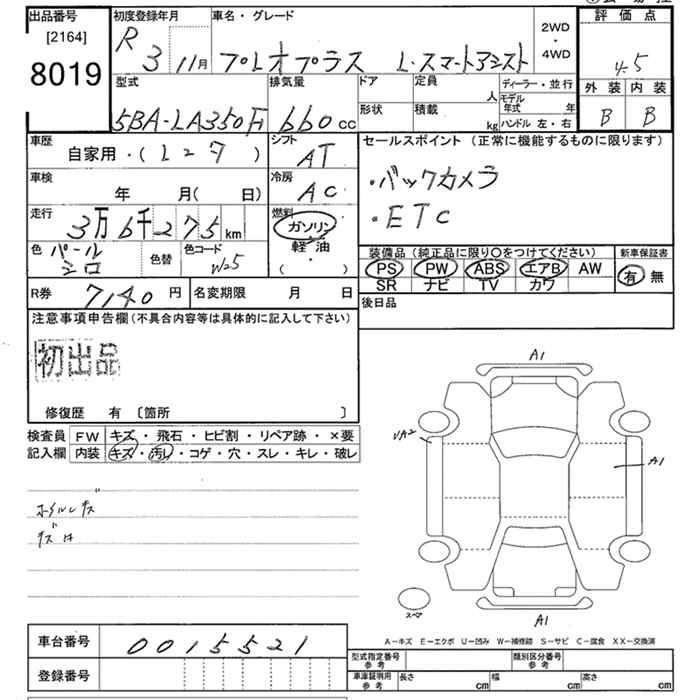 出品番号
[2164]
8019
初度登録年月
R 3 11月
車名・グレード
プレオプラス L・スマートアシスト
2WD
・
4WD
評価点
4.5
外装 内装
B B
型式
5BA-LA350F
排気量
660 cc
ドア
形状
定員
人
積載
kg
ディーラー・並行
モデル年式 年
ハンドル 左・右
車歴
自家用・(レンタ)
シフト
AT
車検
年 月( 日)
冷房
AC
走行
3万6千275km
燃料
ガソリン
軽油
・
( )
色 パール
シロ
色替
色コード
W25
R券 7140円
名変期限 月 日
セールスポイント (正常に機能するものに限ります)
・バックカメラ
・ETC
装備品(純正品に限り〇をつけてください)
PS PW ABS エアB AW
SR ナビ TV カワ
新車保証書
有・無
後日品
注意事項申告欄(不具合内容等は具体的に記入して下さい)
初出品
修復歴 有 〔箇所 〕
検査員
記入欄
FW キズ・飛石・ヒビ割・リペア跡・×要
内装 キズ・汚レ・コゲ・穴・スレ・キレ・破レ
ホイルキズ
A1
A1
A1
スペア
A-キズ E-エクボ U-凹み W-補修跡 S-サビ C-腐食 XX-交換済
車台番号 0015521
登録番号
型式指定番号
参考
類別区分番号
参考
車庫証明用
参考
長さ cm
幅 cm
高さ cm